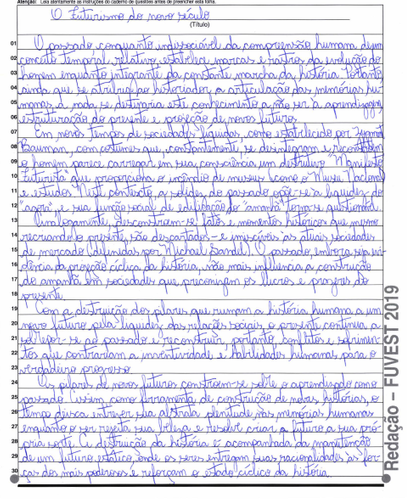 Atenção: Leia atentamente as instruções do caderno de questões antes de preencher esta folha.
O Futurismo do novo século
(Título)
01 O passado, conquanto indissociável da compreensão humana dum
02 conceito temporal relativo, estabelece marcas e rastros da evolução do
03 homem enquanto integrante da constante marcha da história. Portanto,
04 ainda que se atribua ao historiador a articulação das memórias hu-
05 manas, de nada se destinaria este conhecimento a não ser à aprendizagem,
06 estruturação do presente e projeção de novos futuros.
07 Em novos tempos de sociedades líquidas, como estabelecido por Zygmunt
08 Bauman, com costumes que, constantemente, se desintegram e reconstroem
09 o homem parece carregar em sua consciência um destrutivo "Manifesto
10 Futurista" que proporciona o incêndio de museus como o Museu Nacional
11 e estudos. Neste contexto, a solidez do passado opõe-se à liquidez do
12 "agora", e sua função social de edificação do "amanhã" torna-se questionável.
13 Analogamente, descontroem-se fatos e momentos históricos que, mesmo
14 recriando o presente, são descartados e imiscíveis às atuais sociedades
15 de mercado (definidas por Michael Sandel). O passado, embora seja evi-
16 dência da projeção cíclica da história, não mais influencia a construção
17 do amanhã em sociedades que preconizam os lucros e prazeres do
18 presente.
19 Com a destruição dos pilares que rumam a história humana a um
20 novo futuro pela liquidez das relações sociais, o presente continua a
21 se passado e reconstruir, portanto, conflitos e sofrimen-
22 tos que contrariam a inventividade e habilidades humanas para o
23 verdadeiro progresso.
24 Os pilares de novos futuros constroem-se sobre o aprendizado com o
25 passado. Assim, como ferramenta de construção de nossas histórias, o
26 tempo deixa entrever sua abstrata plenitude nas memórias humanas
27 enquanto o ser rejeita sua e resolve criar o futuro a sua pró-
28 pria sorte. A destruição da história é acompanhada da manutenção
29 de um futuro estático, onde os seres entregam suas racionalidades às for-
30 ças dos mais poderosos e reforçam o estado cíclico da história.
Redação – FUVEST 2019